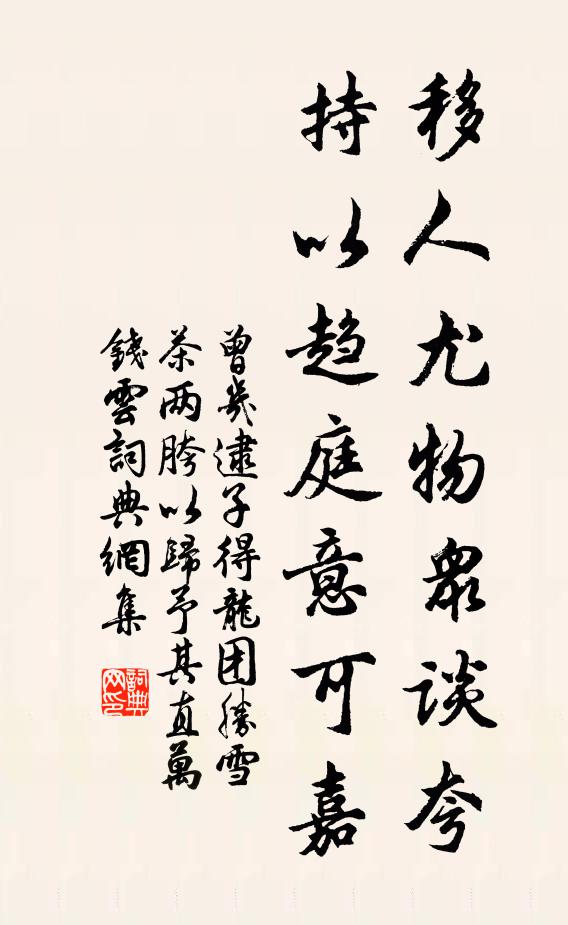 移人尤物衆談夸
持以趋庭意可嘉
曾幾逮子得龍团勝雪
茶两胯以歸予其直萬
錢雲詞典網集
詞典网印